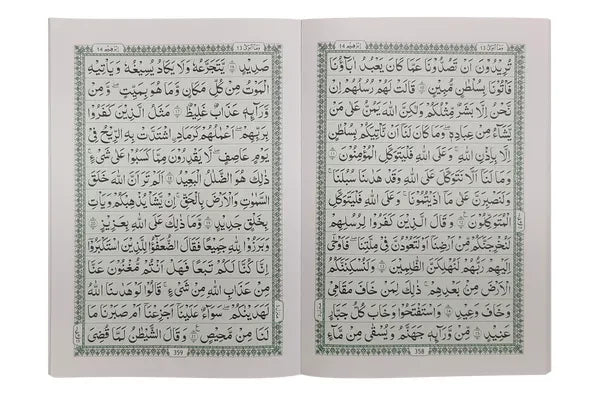 وَمَا أُبَرِّئُ 13
إبرٰهيم 14
تُرِيدُونَ اَنْ تَصُدُّونَا عَمَّا كَانَ يَعْبُدُ اٰبَآؤُنَا
فَأْتُونَا بِسُلْطٰنٍ مُّبِينٍ ۝١٠ قَالَتْ لَهُمْ رُسُلُهُمْ اِنْ
نَّحْنُ اِلَّا بَشَرٌ مِّثْلُكُمْ وَلٰكِنَّ اللّٰهَ يَمُنُّ عَلٰى مَنْ
يَّشَآءُ مِنْ عِبَادِهٖ ؕ وَمَا كَانَ لَنَآ اَنْ نَّأْتِيَكُمْ بِسُلْطٰنٍ
اِلَّا بِاِذْنِ اللّٰهِ ؕ وَعَلَى اللّٰهِ فَلْيَتَوَكَّلِ الْمُؤْمِنُونَ ۝١١
وَمَا لَنَآ اَلَّا نَتَوَكَّلَ عَلَى اللّٰهِ وَقَدْ هَدٰىنَا سُبُلَنَا ؕ
وَلَنَصْبِرَنَّ عَلٰى مَآ اٰذَيْتُمُونَا ؕ وَعَلَى اللّٰهِ فَلْيَتَوَكَّلِ
الْمُتَوَكِّلُونَ ۝١٢ وَقَالَ الَّذِينَ كَفَرُوا لِرُسُلِهِمْ
لَنُخْرِجَنَّكُمْ مِّنْ اَرْضِنَآ اَوْ لَتَعُودُنَّ فِي مِلَّتِنَا ؕ فَاَوْحٰٓى
اِلَيْهِمْ رَبُّهُمْ لَنُهْلِكَنَّ الظّٰلِمِينَ ۝١٣ وَلَنُسْكِنَنَّكُمُ
الْاَرْضَ مِنْ بَعْدِهِمْ ؕ ذٰلِكَ لِمَنْ خَافَ مَقَامِي
وَخَافَ وَعِيدِ ۝١٤ وَاسْتَفْتَحُوا وَخَابَ كُلُّ جَبَّارٍ
عَنِيدٍ ۝١٥ مِّنْ وَّرَآئِهٖ جَهَنَّمُ وَيُسْقٰى مِنْ مَّآءٍ
358
وَمَا أُبَرِّئُ 13
إبرٰهيم 14
صَدِيدٍ ۝١٦ يَّتَجَرَّعُهٗ وَلَا يَكَادُ يُسِيغُهٗ وَيَأْتِيهِ
الْمَوْتُ مِنْ كُلِّ مَكَانٍ وَّمَا هُوَ بِمَيِّتٍ ؕ وَمِنْ
وَّرَآئِهٖ عَذَابٌ غَلِيظٌ ۝١٧ مَثَلُ الَّذِينَ كَفَرُوا
بِرَبِّهِمْ اَعْمَالُهُمْ كَرَمَادِ ۨاشْتَدَّتْ بِهِ الرِّيحُ فِي
يَوْمٍ عَاصِفٍ ؕ لَا يَقْدِرُونَ مِمَّا كَسَبُوا عَلٰى شَيْءٍ ؕ
ذٰلِكَ هُوَ الضَّلٰلُ الْبَعِيدُ ۝١٨ اَلَمْ تَرَ اَنَّ اللّٰهَ خَلَقَ
السَّمٰوٰتِ وَالْاَرْضَ بِالْحَقِّ ؕ اِنْ يَّشَأْ يُذْهِبْكُمْ وَيَأْتِ
بِخَلْقٍ جَدِيدٍ ۝١٩ وَّمَا ذٰلِكَ عَلَى اللّٰهِ بِعَزِيزٍ ۝٢٠
وَبَرَزُوا لِلّٰهِ جَمِيعًا فَقَالَ الضُّعَفٰٓؤُا لِلَّذِينَ اسْتَكْبَرُوٓا
اِنَّا كُنَّا لَكُمْ تَبَعًا فَهَلْ اَنْتُمْ مُّغْنُونَ عَنَّا
مِنْ عَذَابِ اللّٰهِ مِنْ شَيْءٍ ؕ قَالُوا لَوْ هَدٰىنَا اللّٰهُ
لَهَدَيْنٰكُمْ ؕ سَوَآءٌ عَلَيْنَآ اَجَزِعْنَآ اَمْ صَبَرْنَا مَا
لَنَا مِنْ مَّحِيصٍ ۝٢١ وَقَالَ الشَّيْطٰنُ لَمَّا قُضِيَ
359